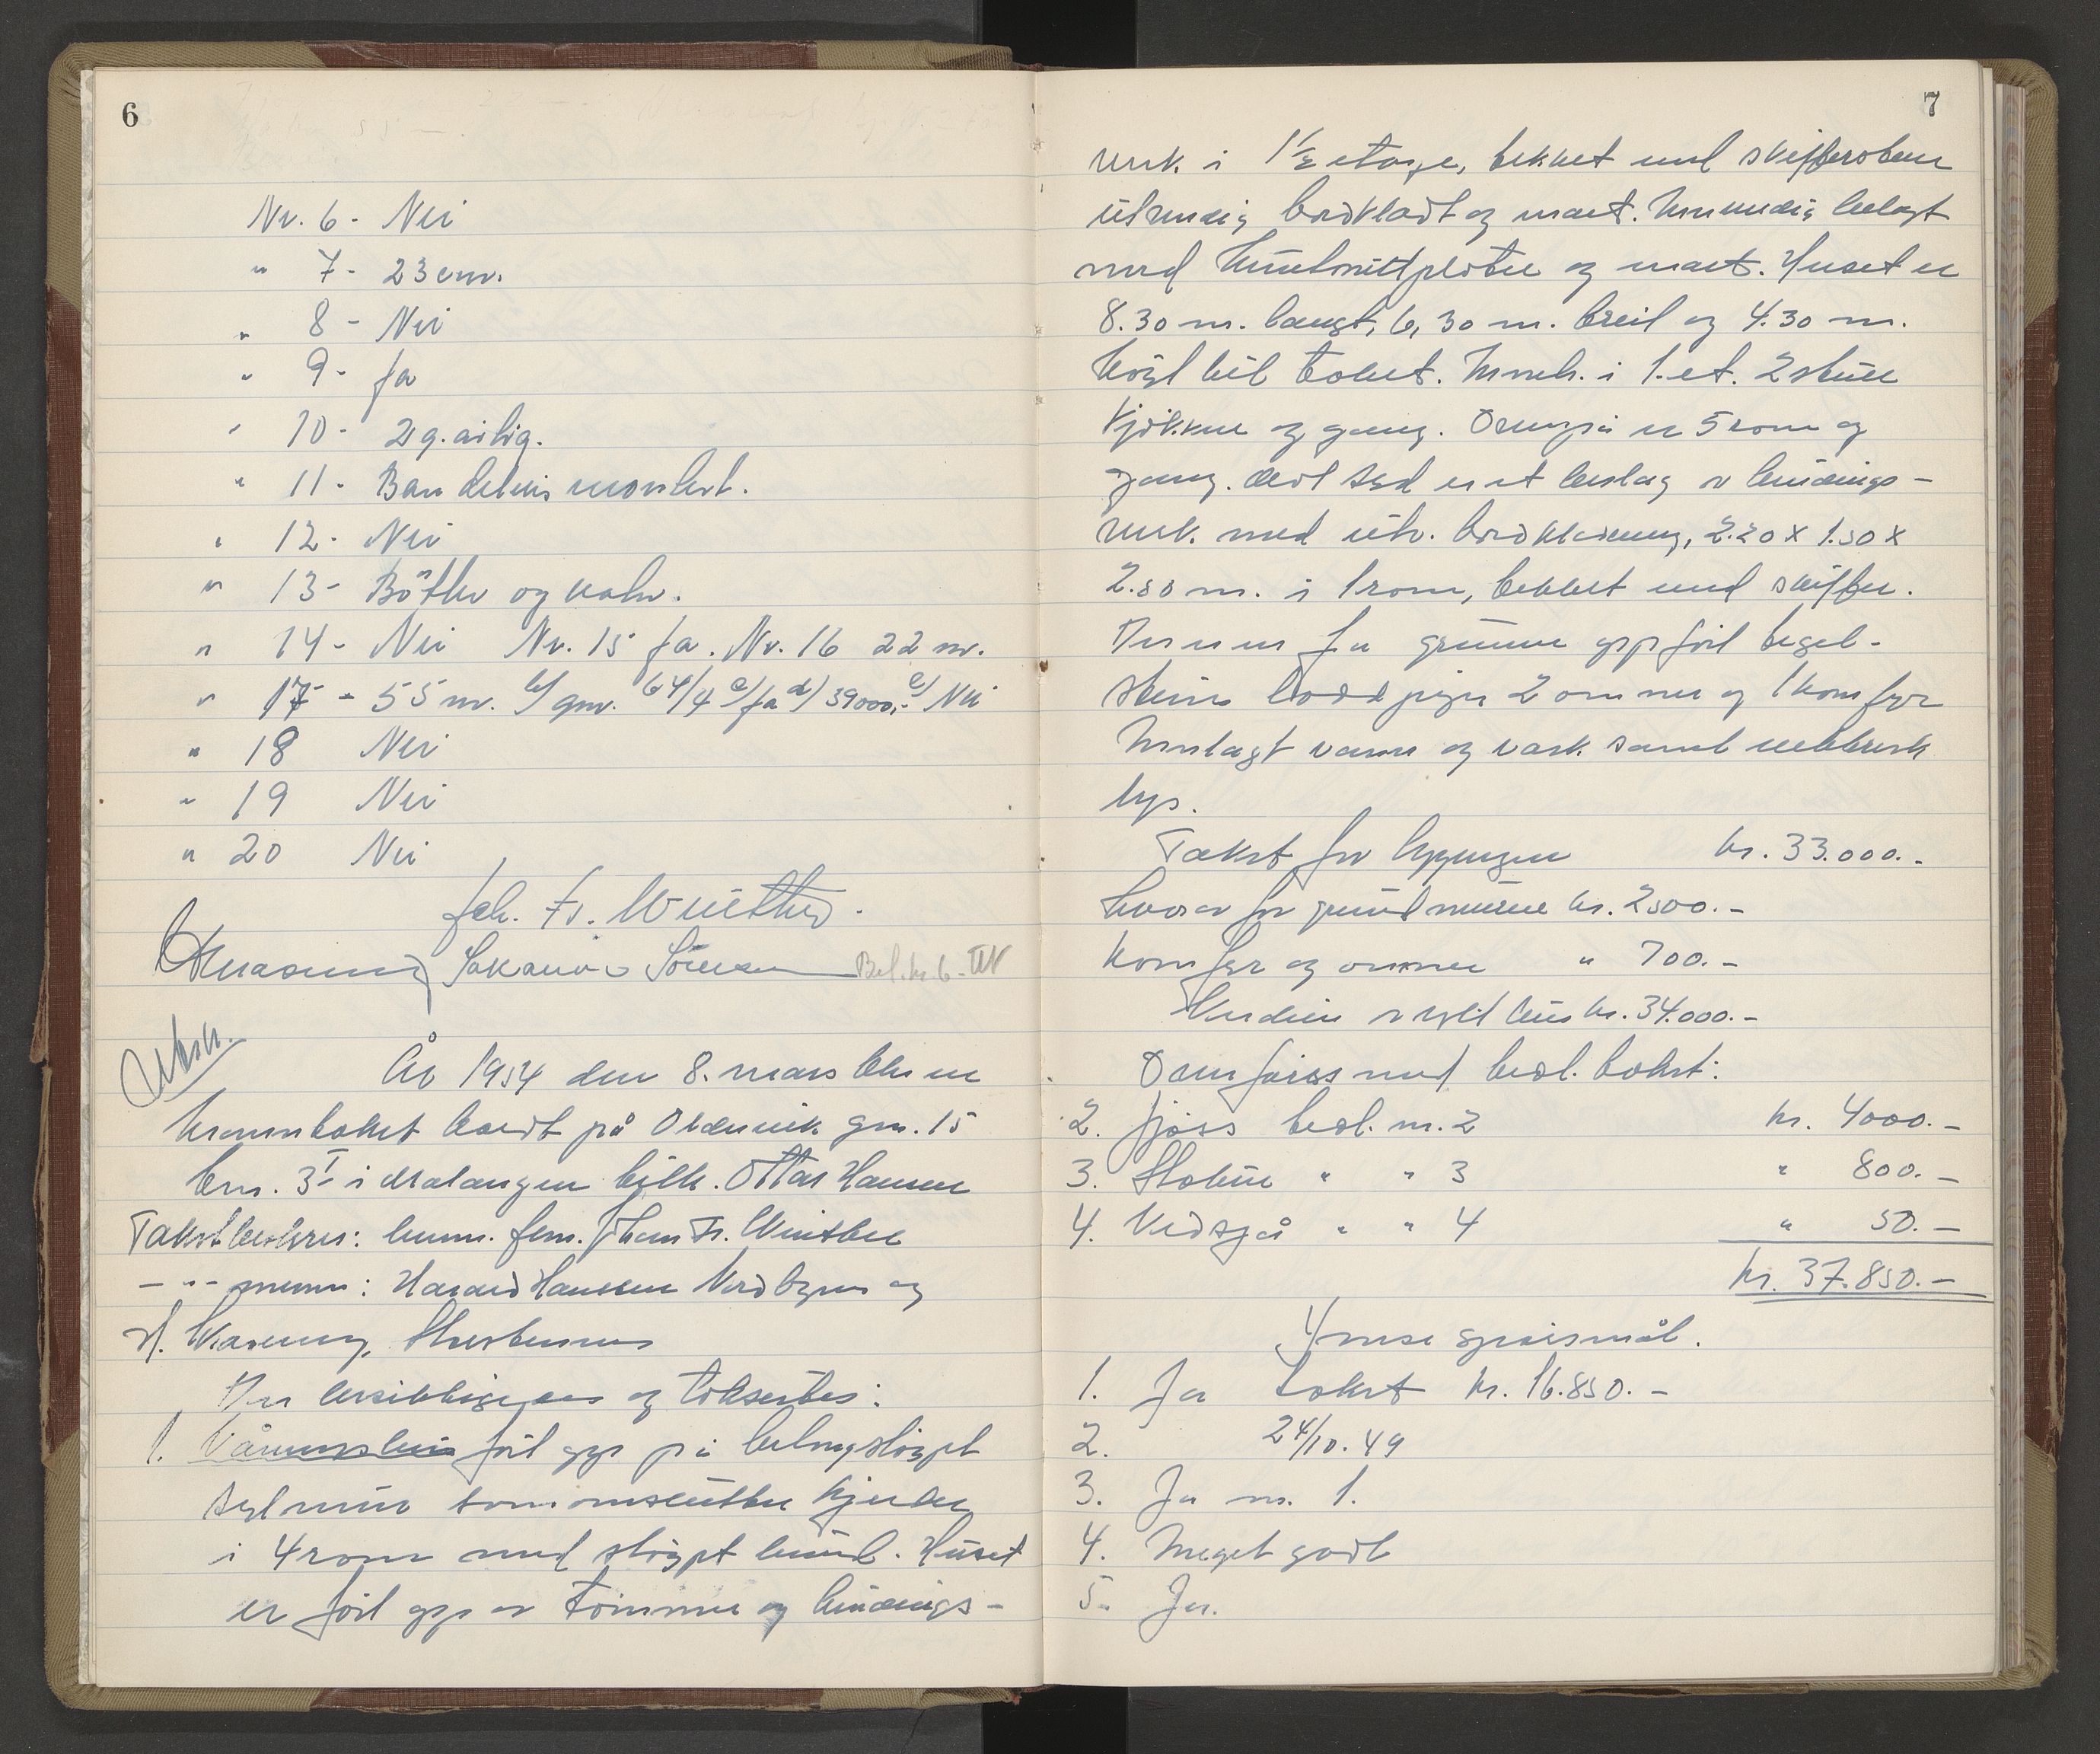 6
Nr. 6 - Nei
" 7 - 23 cm.
" 8 - Nei
" 9 - Ja
" 10 - 2 g. årlig.
" 11 - Bare delvis montert.
" 12 - Nei
" 13 - Bötter og kalv.
" 14 - Nei Nr. 15 Ja. Nr. 16 22 m.
" 17 - 55 m. b/ gnr. 64/4 c/ Ja d/ 39000,- e/ Nei
" 18 Nei
" 19 Nei
" 20 Nei
Joh. Fr. Winther.
Sakarias Sörensen Bel. kr. 6.-
Utskr.
År 1954 den 8. mars blev en
branntakst holdt på Oldervik gnr. 15
bnr. 3 i Malangen tilh. Ottar Hansen
Takstbestyrer: lensm. fem. Johan Fr. Winther
- " - menn: Harald Hansen Nordbynes og
H.
Der besiktigedes og taksertes:
1. Våningshus före opp på betongstöypt
syl mur som omslutter kjeller
i 4 rom med stöypt bund. Huset
er fört opp av tömmer og bindings-
7
verk i 1½ etasje, tekket med skiferstein
utvendig bordkledt og malt. Innvendig belagt
med huntonittplater og malt. Huset er
8.30 m. langt, 6,30 m. breit og 4.30 m.
högt til taket. Innh. i 1. et. 2 stuer
kjökken og gang. Ovenpå er 5 rom og
gang. Ved syd er et beslag av bindings-
verk med utv. bordkledning, 2.20 x 1.50 x
2.50 m. i 1 rom, tekket med skiffer.
Der er fra grunnen oppfört tegl-
steins 2 ovner og 1 komfyr
Innlagt vann og vask samt elektrisk
lys.
Takst for bygningen kr. 33.000.-
hvorav for grundmuren kr. 2500.-
komfyr og ovner " 700.-
Verdien av nytt hus kr. 34.000.-
Dem föres med tidl. takst:
2. Fjös tidl. nr. 2 kr. 4000.-
3. Stabur " " 3 " 800.-
4. Vedsjå " " 4 " 50.-
kr. 37.850.-
Ymse spörsmål.
1. Ja takst kr. 16.850.-
2. 24/10.49
3. Ja nr. 1.
4. Meget godt
5. Ja.